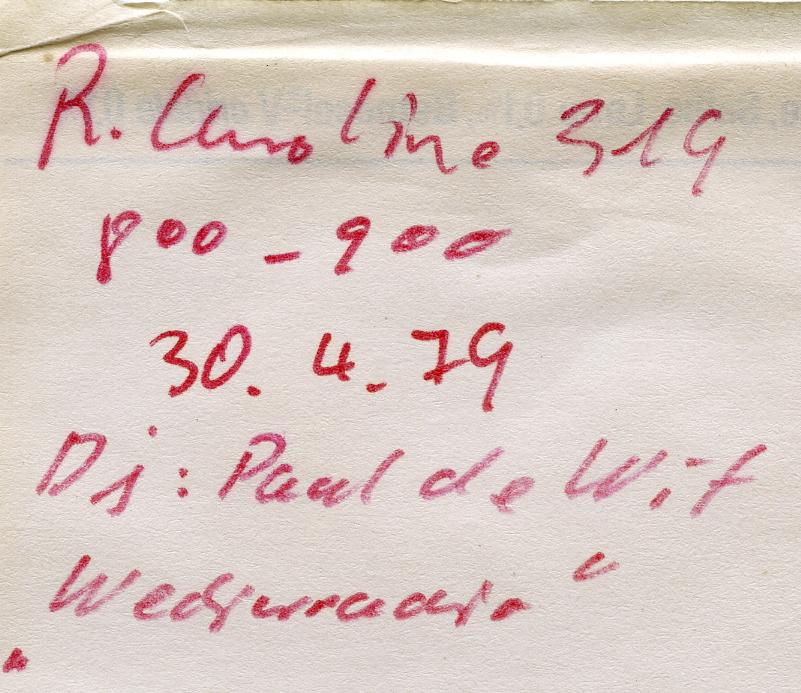 R. Caroline 319
800 - 900
30. 4. 79
Dj: Paul de Wit
"Weckerradio"